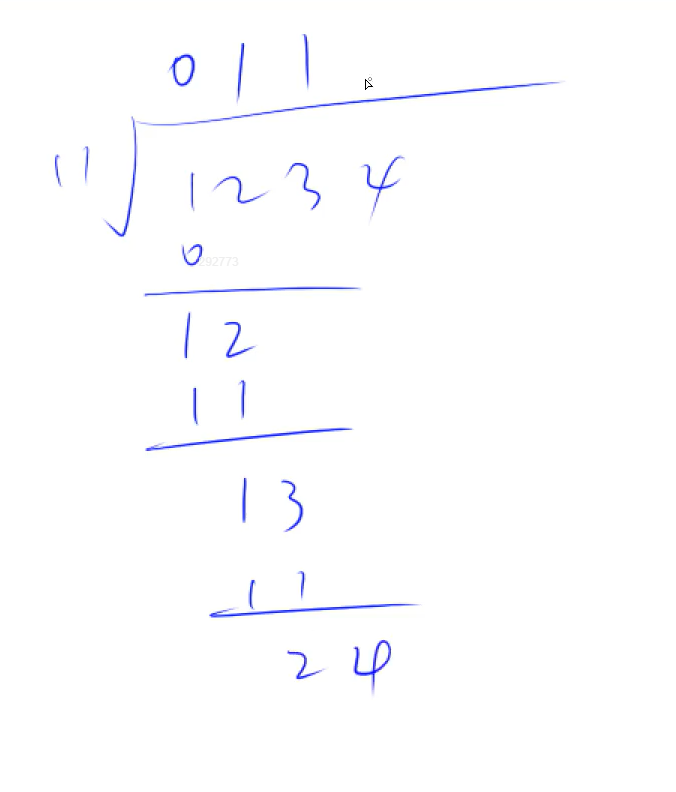 011
11 1234
0
12
11
13
11
24